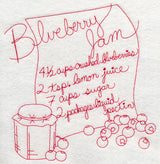 Blueberry
Jam
4½ cups crushed blueberries
2 tsps lemon juice
7 cups sugar
2 packages liquid
pectin